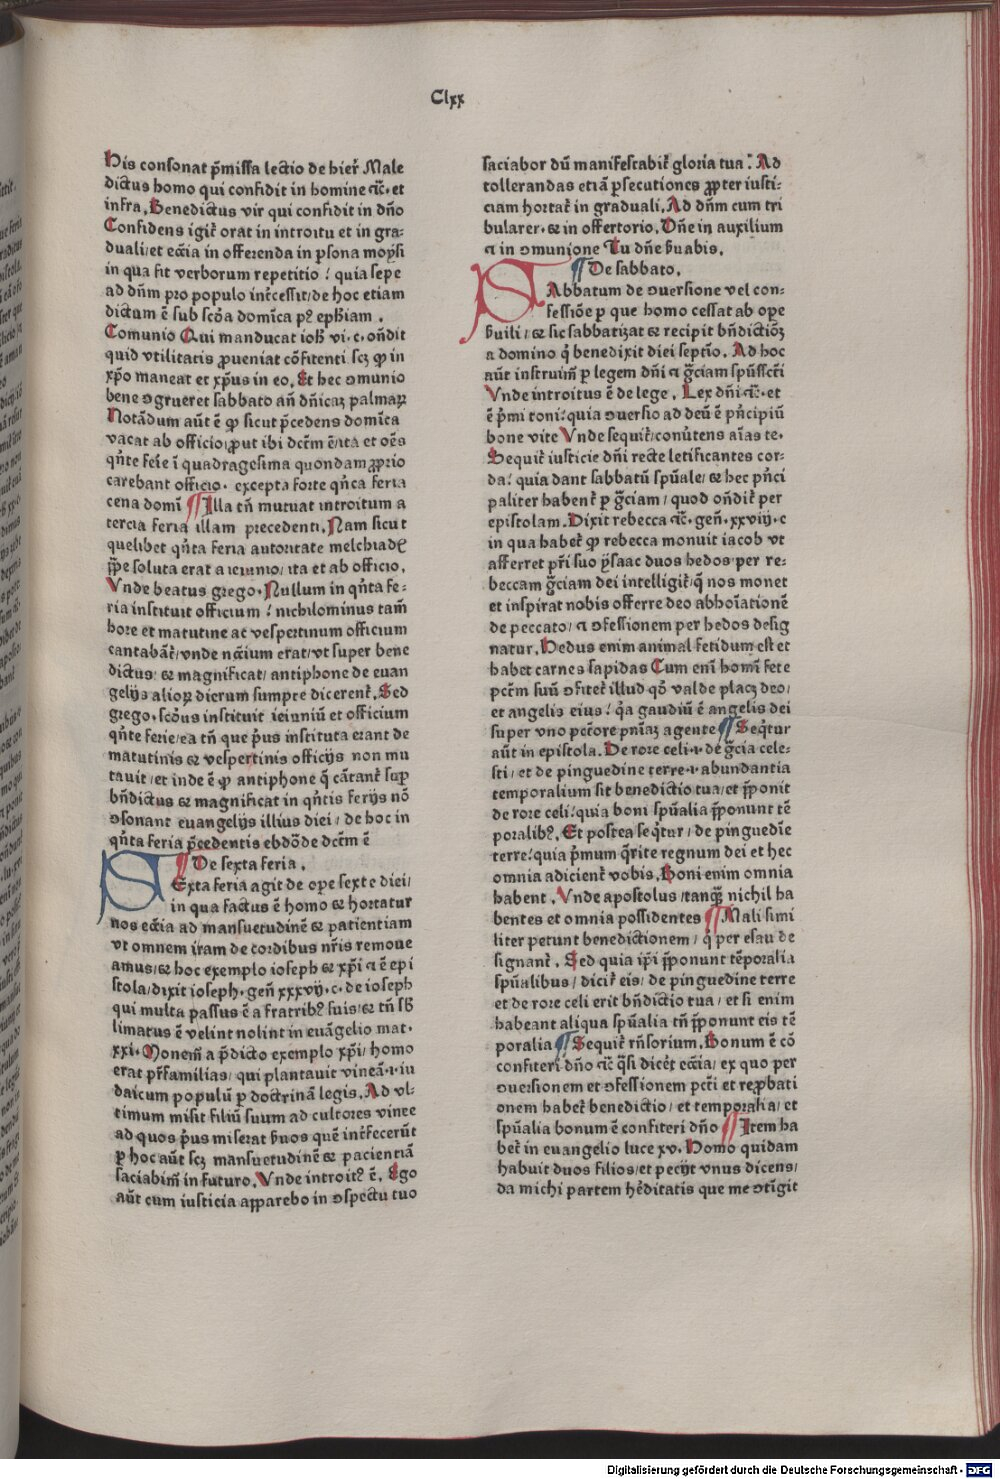 Clxx
His consonat p̄missa lectio de hier̄ Male
dictus homo qui confidit in homine ⁊c̄. et
infra. Benedictus vir qui confidit in dn̄o
Confidens igit̄ orat in introitu et in gra-
duali/et ecc̄ia in offerenda in ꝑsona moysi
in qua fit verborum repetitio! quia sepe
ad dn̄m pro populo int̄cessit/de hoc etiam
dictum ē sub scd̄a domīca pꝰ eph̄iam.
Comunio Qui manducat ioh̄ vi. c. on̄dit
quid vtilitatis ꝓueniat cōfitenti scꝫ ꝙ in
xp̄o maneat et xp̄us in eo. Et hec ↄmunio
bene ↄgrueret sabbato an̄ dn̄icaꝫ palmaꝝ
Notādum aūt ē ꝙ sicut p̄cedens domīca
vacat ab officio/ꝓut ibi dc̄m ē/ita et oēs
qn̄te fer̄ie ī quadragesima quondam ꝓprio
carebant officio. excepta forte qn̄ca feria
cena domī ¶ Illa tn̄ mutuat introitum a
tercia feria illam precedenti. Nam sicut
quelibet qn̄ta feria autoritate melchiadꝭ
pp̄e soluta erat a ieiunio/ita et ab officio.
Vnde beatus grego. Nullum in qn̄ta fe-
ria instituit officium! nichilominus tam̄
hore et matutine ac vespertinum officium
cantabāt̄/vnde nc̄ium erat/vt super bene
dictus/ ⁊ magnificat/antiphone de euan
gelijs alioꝝ dierum sumpte dicerent̄. Sed
grego. scd̄us instituit ieiuniū et officium
qn̄te ferie/ea tn̄ que p̄us instituta erant de
matutinis ⁊ vespertinis officijs non mu
tauit/et inde ē ꝙ antiphone q̄ cātant̄ suꝑ
bn̄dictus ⁊ magnificat in qn̄tis ferijs nō
ↄsonant euangelijs illius diei/ de hoc in
qn̄ta feria p̄cedentis ebdōde dc̄m ē
¶ De sexta feria.
SExta feria agit de ope sexte diei/
in qua factus ē homo ⁊ hortatur
nos ecc̄ia ad mansuetudinē ⁊ patientiam
vt omnem iram de cordibus nr̄is remoue
amus/⁊ hoc exemplo ioseph ⁊ xp̄i ⁊ ē epi
stola/dixit ioseph. gen̄ xxxvij. c. de ioseph
qui multa passus ē a fratribꝰ suis/⁊ tn̄ sb̄
limatus ē velint nolint in euāgelio mat.
xxi. Monem̄ a p̄dicto exemplo xp̄i/ homo
erat pr̄familias/ qui plantauit vineā.i. iu
daicum populū ꝑ doctrinā legis. Ad vl-
timum misit filiū suum ad cultores vinee
ad quos p̄us miserat s̄uos quē int̄fecerūt
ꝑ hoc aūt scꝫ mansuetudinē ⁊ pacientiā
saciabim̄ in futuro. Vnde introitꝰ ē. Ego
aūt cum iusticia apparebo in ↄspectu tuo
saciabor dū manifestabit̄ gloria tua. Ad
tollerandas etiā ꝑsecutiones ꝓpter iusti-
ciam hortat̄ in graduali. Ad dn̄m cum tri
bularer. ⁊ in offertorio. Dn̄e in auxilium
⁊ in ↄmunione Tu dn̄e s̄uabis.
¶ De sabbato.
SAbbatum de ↄuersione vel con-
fessiōe ꝑ que homo cessat ab ope
s̄uili/⁊ sic sabbatizat ⁊ recipit bn̄dictiōꝫ
a domino q̄ benedixit diei septīo. Ad hoc
aūt instruim̄ ꝑ legem dn̄i ⁊ gr̄ciam spūsscti
Vnde introitus ē de lege. Lex dn̄i ⁊c̄. et
ē p̄mi toni! quia ↄuersio ad deū ē pn̄cipiū
bone vite Vnde sequit̄/conu̇tens aīas ⁊c.
Sequit̄ iusticie dn̄i recte letificantes cor-
da! quia dant sabbatū spūale/⁊ hec pn̄ci
paliter habent̄ ꝑ gr̄ciam/ quod on̄dit̄ per
epistolam. Dixit rebecca ⁊c̄. gen̄. xxviij. c
in qua habet̄ ꝙ rebecca monuit iacob vt
afferret pr̄i suo ysaac duos hedos/per re-
beccam gr̄ciam dei intelligit̄/q̄ nos monet
et inspirat nobis offerre deo abhoīationē
de peccato/ ⁊ ↄfessionem per hedos desig
natur. Hedus enim animal fetidum est et
habet carnes sapidas Cum enī homī fete
pct̄m suū ↄfitet̄ illud qd̄ valde placꝫ deo/
et angelis eius! qa gaudiū ē angelis dei
super vno pct̄ore pn̄iaꝫ agente ¶ Seqt̄ur
aūt in epistola. De rore celi.i. de gr̄cia cele-
sti/ et de pinguedine terre.i. abundantia
temporalium sit benedictio tua/et p̄ponit
de rore celi! quia boni spūalia p̄ponunt tē
poralibꝰ. Et postea seqt̄ur/ de pinguedīe
terre! quia p̄mum q̄rite regnum dei et hec
omnia adicient̄ vobis. Boni enim omnia
habent. Vnde apostolus/tanqꝫ nichil ha
bentes et omnia possidentes ¶ Mali simi
liter petunt benedictionem/ q̄ per esau de
signant̄. Sed quia ip̄i p̄ponunt tēporalia
spūalibus/ dicit̄ eis/ de pinguedine terre
et de rore celi erit bn̄dictio tua/ et si enim
habeant aliqua spūalia tn̄ p̄ponunt eis tē
poralia ¶ Sequit̄ rn̄sorium. Bonum ē cō
confiteri dn̄o ⁊c̄ q̄si dicet ecc̄ia/ ex quo per
ↄuersionem et ↄfessionem pct̄i et reꝓbati
onem habet̄ benedictio/ et temporalia/ et
spūalia bonum ē confiteri dn̄o ¶ Item ha
bet̄ in euangelio luce xv. Homo quidam
habuit duos filios/et pecijt vnus dicens/
da michi partem he̅ditatis que me ↄtīgit
Digitalisierung gefördert durch die Deutsche Forschungsgemeinschaft - DFG